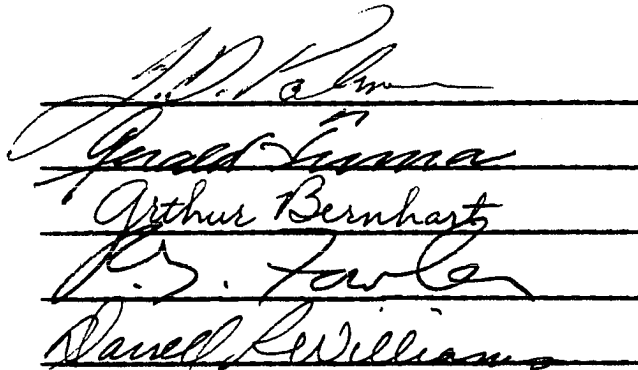 J. D. Palmer
Gerald Tuma
Arthur Bernhart
R. G. Fowler
Darrell R Williams